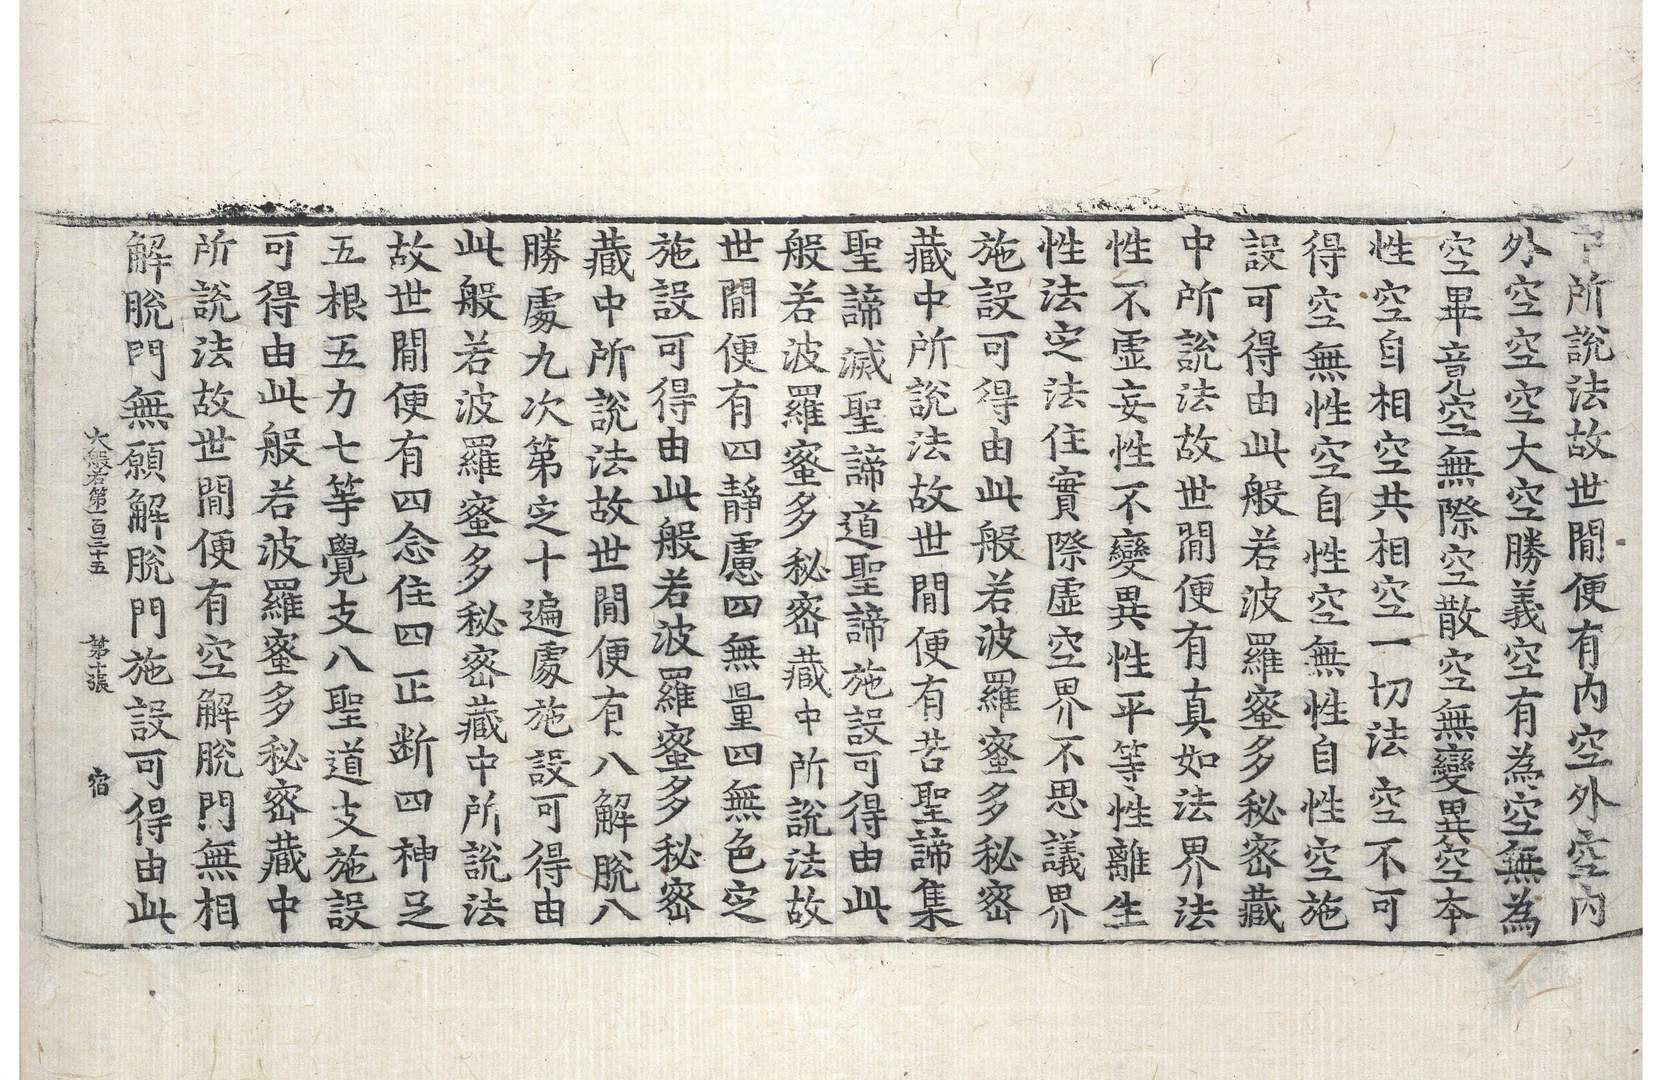 中所說法故世間便有內空外空內
外空空空大空勝義空有為空無為
空畢竟空無際空散空無變異空本
性空自相空共相空一切法空不可
得空無性空自性空無性自性空施
設可得由此般若波羅蜜多秘密藏
中所說法故世間便有真如法界法
性不虛妄性不變異性平等性離生
性法定法住實際虛空界不思議界
施設可得由此般若波羅蜜多秘密
藏中所說法故世間便有苦聖諦集
聖諦滅聖諦道聖諦施設可得由此
般若波羅蜜多秘密藏中所說法故
世間便有四靜慮四無量四無色定
施設可得由此般若波羅蜜多秘密
藏中所說法故世間便有八解脫八
勝處九次第定十遍處施設可得由
此般若波羅蜜多秘密藏中所說法
故世間便有四念住四正断四神足
五根五力七等覺支八聖道支施設
可得由此般若波羅蜜多秘密藏中
所說法故世間便有空解脫門無相
解脫門無願解脫門施設可得由此
大般若第一百三十五 第十張 宿